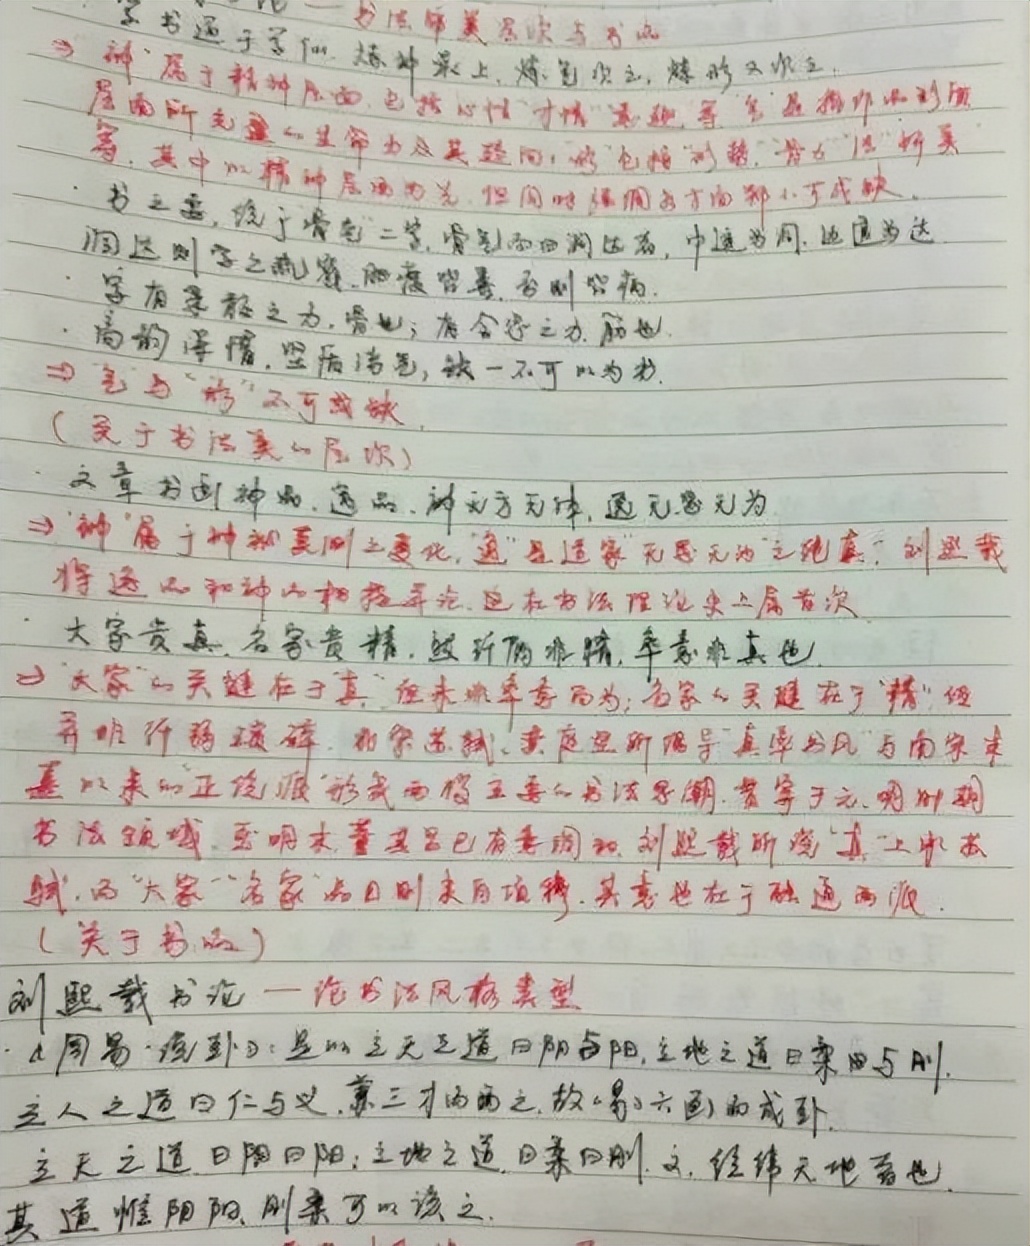 论 — 书法审美层次与书品
学书通于学仙，炼神最上，炼气次之，炼形又次之。
⇒ "神"属于精神层面，包括"心性""才情""意趣"等，"气"是指作品形质
层面所充盈的生命力及其趋向，"形"包括"形势""骨力""法"所关
等，其中以精神层面为先，但同时强调各方面都不可或缺。
· 书之要，统于"骨气"二字，骨气而曰洞达者，中透为洞，边透为达
洞达则字之疏密肥瘦皆善，否则皆病.
· 字有果敢之力，骨也；有含忍之力，筋也.
· 高韵深情，坚质浩气，缺一不可以为书.
⇒ "气"与"形"不可或缺.
(关于书法美的层次)
· 文章书画神品、逸品，神无方无体，逸无思无为
⇒ "神"属于神秘莫测之变化，"逸"是道家"无思无为"之纯真，刘熙载
将逸品和神品相提并论，这在书法理论史上属首次
· 大家贵真，名家贵精，纤弱非精，率意非真也.
⇒ "大家"的关键在于"真"，但未非率意而为；名家的关键在于"精"，但
并非纤弱破碎，北宋苏轼、黄庭坚所倡导"真率书风"与南宋末
以来的"正统派"形成两股主要的书法思潮，贯穿于元、明时期
书法领域，至明末董其昌已有意调和，刘熙载所说"真"上承苏
轼，而"大家""名家"品目则来自项穆，其意也在于融通两派.
(关于书品)
刘熙载书论 — 论书法风格类型
· 《周易·说卦》：是以立天之道曰阴与阳，立地之道曰柔曰与刚，
立人之道曰仁与义，兼三才而两之，故《易》六画而成卦.
立天之道曰阴曰阳；立地之道，曰柔曰刚.文，经纬天地者也，
其道惟阴阳、刚柔可以该之.